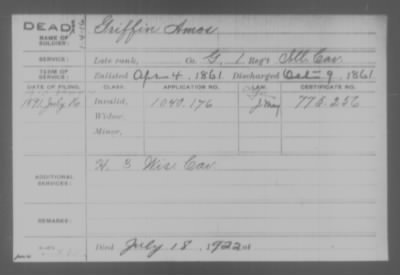 DEAD
NAME OF SOLDIER: Griffin Amos
SERVICE: Late rank, Co. G, 1 Reg't Ill. Cav
TERM OF SERVICE: Enlisted Apr 4, 1861 Discharged Oct 9, 1861
DATE OF FILING. CLASS. APPLICATION NO. LAW. CERTIFICATE NO.
1891 July Invalid, 1040.176 775.256
Widow,
Minor,
ADDITIONAL SERVICES: H. 3 Wis Cav
REMARKS:
Died July 18, 1922 at